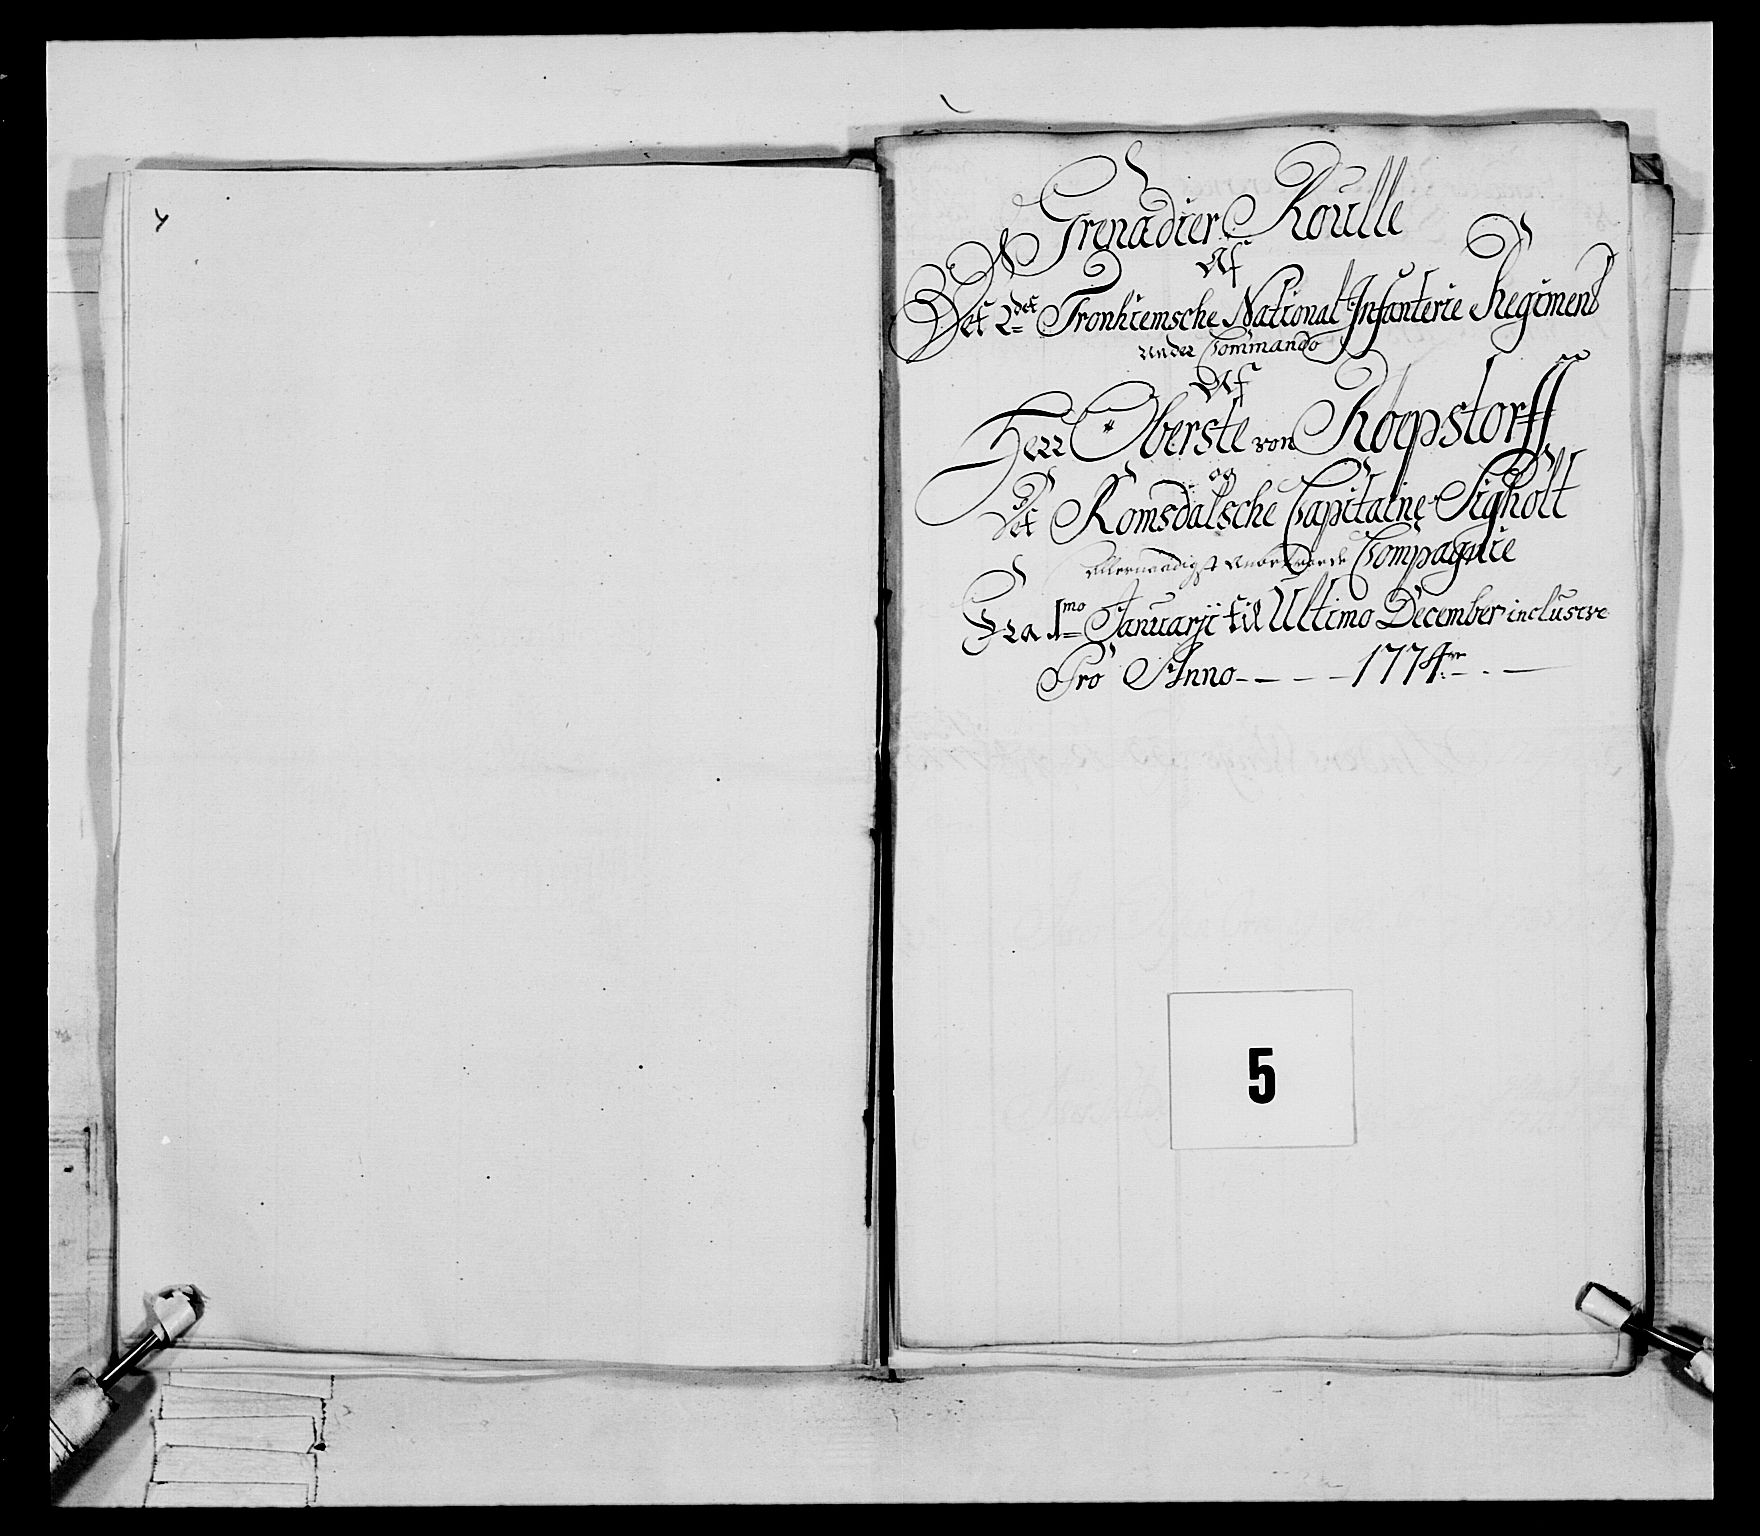 Grenadier Roulle
Af
Det 2det Tronhiemsche National Infanterie Regiment
under Commando
Af
Herr Oberste von Roepstorff
og
Det Romsdalsche Capitaine Sigholt
Allernaadigst anbetroede Compagnie
Fra 1mo Januarji til Ultimo December inclusive
Pro Anno - - - - 1774
5